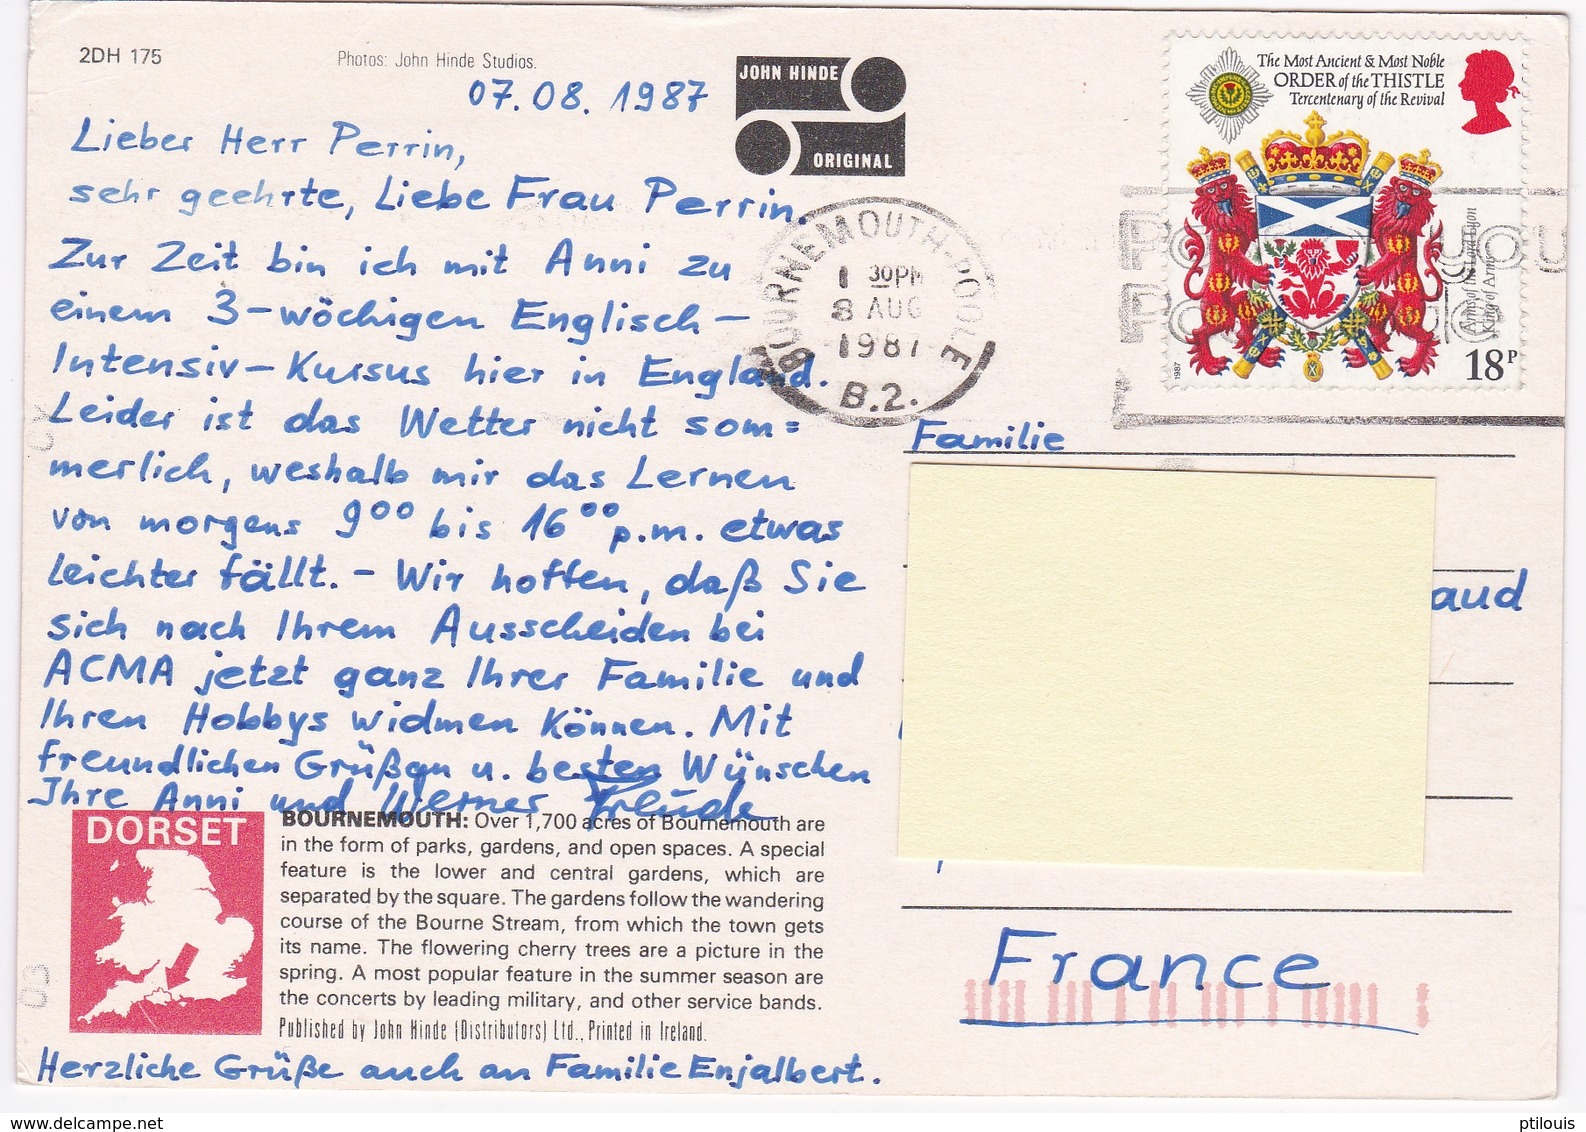 2DH 175
Photos: John Hinde Studios.
07.08.1987
JOHN HINDE
ORIGINAL
Lieber Herr Perrin,
sehr geehrte, Liebe Frau Perrin.
Zur Zeit bin ich mit Anni zu
einem 3-wöchigen Englisch-
Intensiv-Kursus hier in England.
Leider ist das Wetter nicht som=
merlich, weshalb mir das Lernen
von morgens 9⁰⁰ bis 16⁰⁰ p.m. etwas
leichter fällt. - Wir hoffen, daß Sie
sich nach Ihrem Ausscheiden bei
ACMA jetzt ganz Ihrer Familie und
Ihren Hobbys widmen können. Mit
freundlichen Grüßen u. besten Wünschen
Ihre Anni und Werner Freude
DORSET
BOURNEMOUTH: Over 1,700 acres of Bournemouth are
in the form of parks, gardens, and open spaces. A special
feature is the lower and central gardens, which are
separated by the square. The gardens follow the wandering
course of the Bourne Stream, from which the town gets
its name. The flowering cherry trees are a picture in the
spring. A most popular feature in the summer season are
the concerts by leading military, and other service bands.
Published by John Hinde (Distributors) Ltd., Printed in Ireland.
Herzliche Grüße auch an Familie Enjalbert.
The Most Ancient & Most Noble
ORDER of the THISTLE
Tercentenary of the Revival
Arms of the Lord Lyon
King of Arms
1987
18P
BOURNEMOUTH-POOLE
1 30PM
8 AUG
1987
B.2.
Familie
aud
France
ptilouis